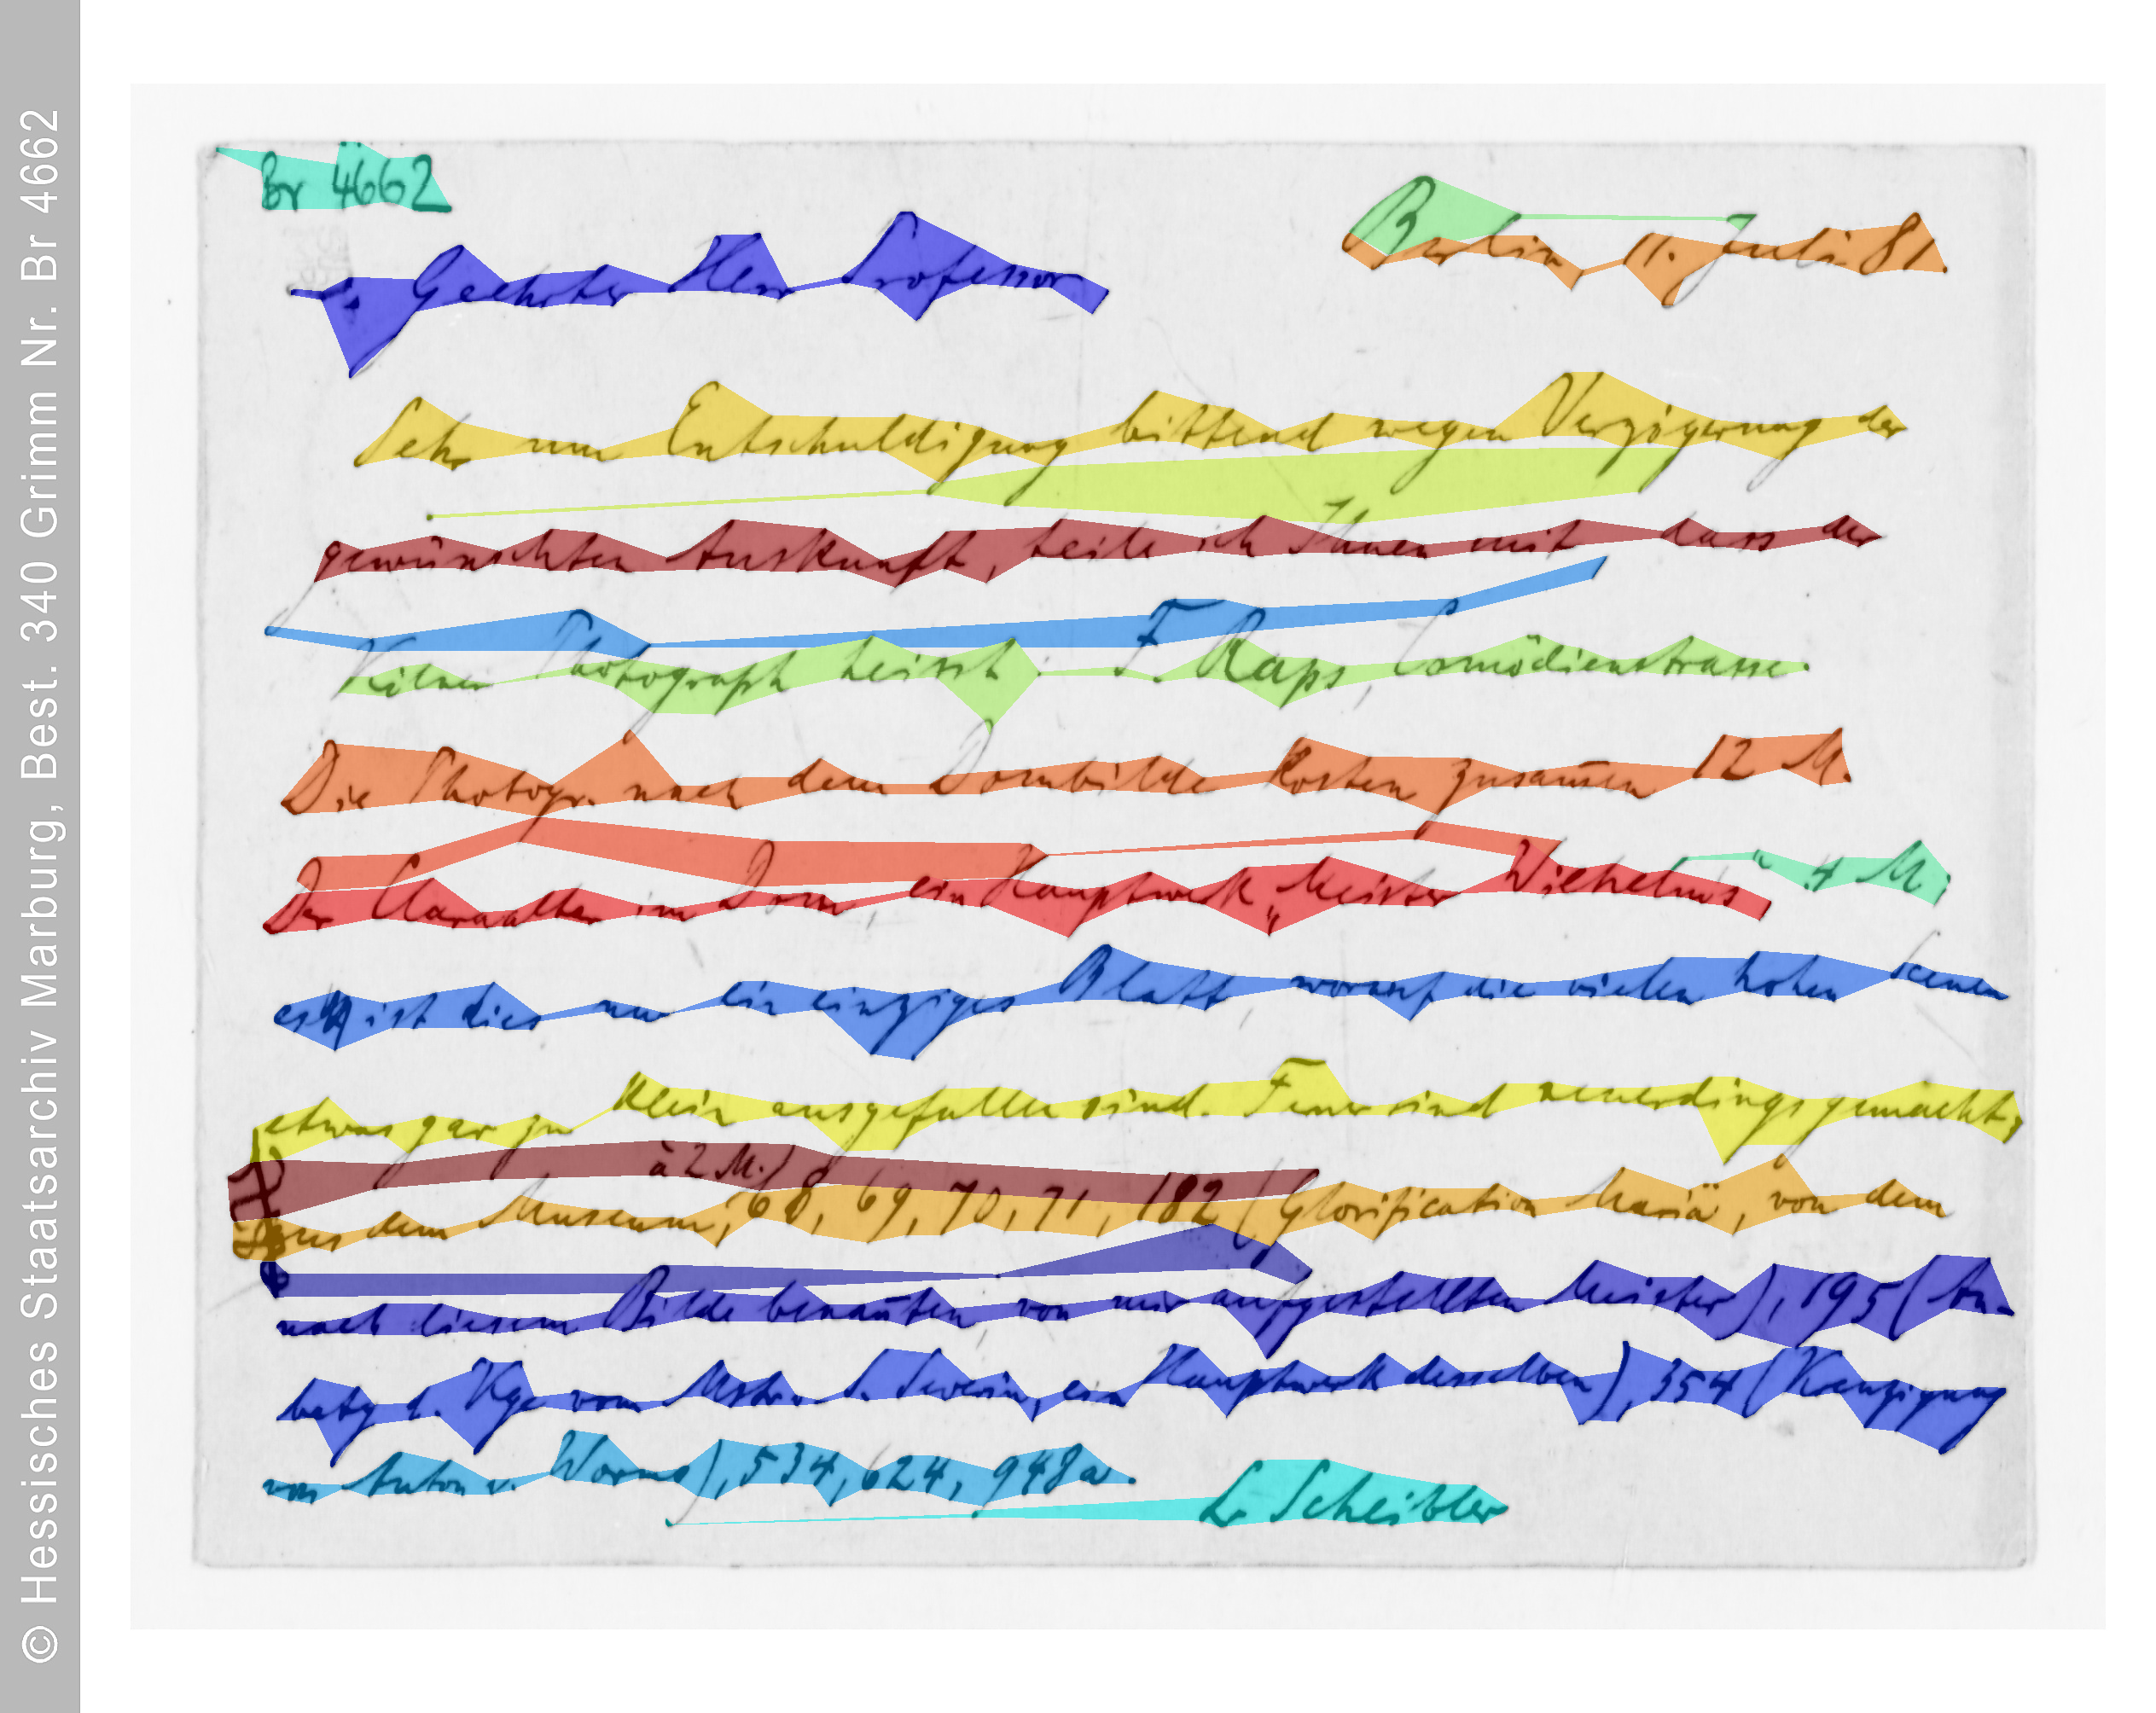 © Hessisches Staatsarchiv Marburg, Best. 340 Grimm Nr. Br 4662
Br 4662
Berlin, 11. Juli 81.
Geehrter Herr Professor
Sehr um Entschuldigung bittend wegen Verzögerung der
gewünschten Auskunft, teile ich Ihnen mit dass der
Kölner Photograph heisst: F. Raps, Comödienstrasse.
Die Photogr. nach dem Dombilde kosten zusam̄en 12 M.
Der Claraaltar im Dom, ein Hauptwerk „Meister Wilhelms" 4 M;
es ist dies nur ein einziges Blatt worauf die vielen hohen Scenen
etwas gar zu klein ausgefallen sind. Ferner sind neuerdings gemacht,
à 2 M.,
aus dem Museum, 68, 69, 70, 71, 182 (Glorification Mariä, von dem
nach diesem Bilde benan̄ten, von mir aufgestellten Meister), 195 (An-
betg d. Kge vom Mstr. S. Severin, ein Hauptwerk desselben), 354 (Kreuzigung
von Anton v. Worms), 534, 624, 948a.
L. Scheibler